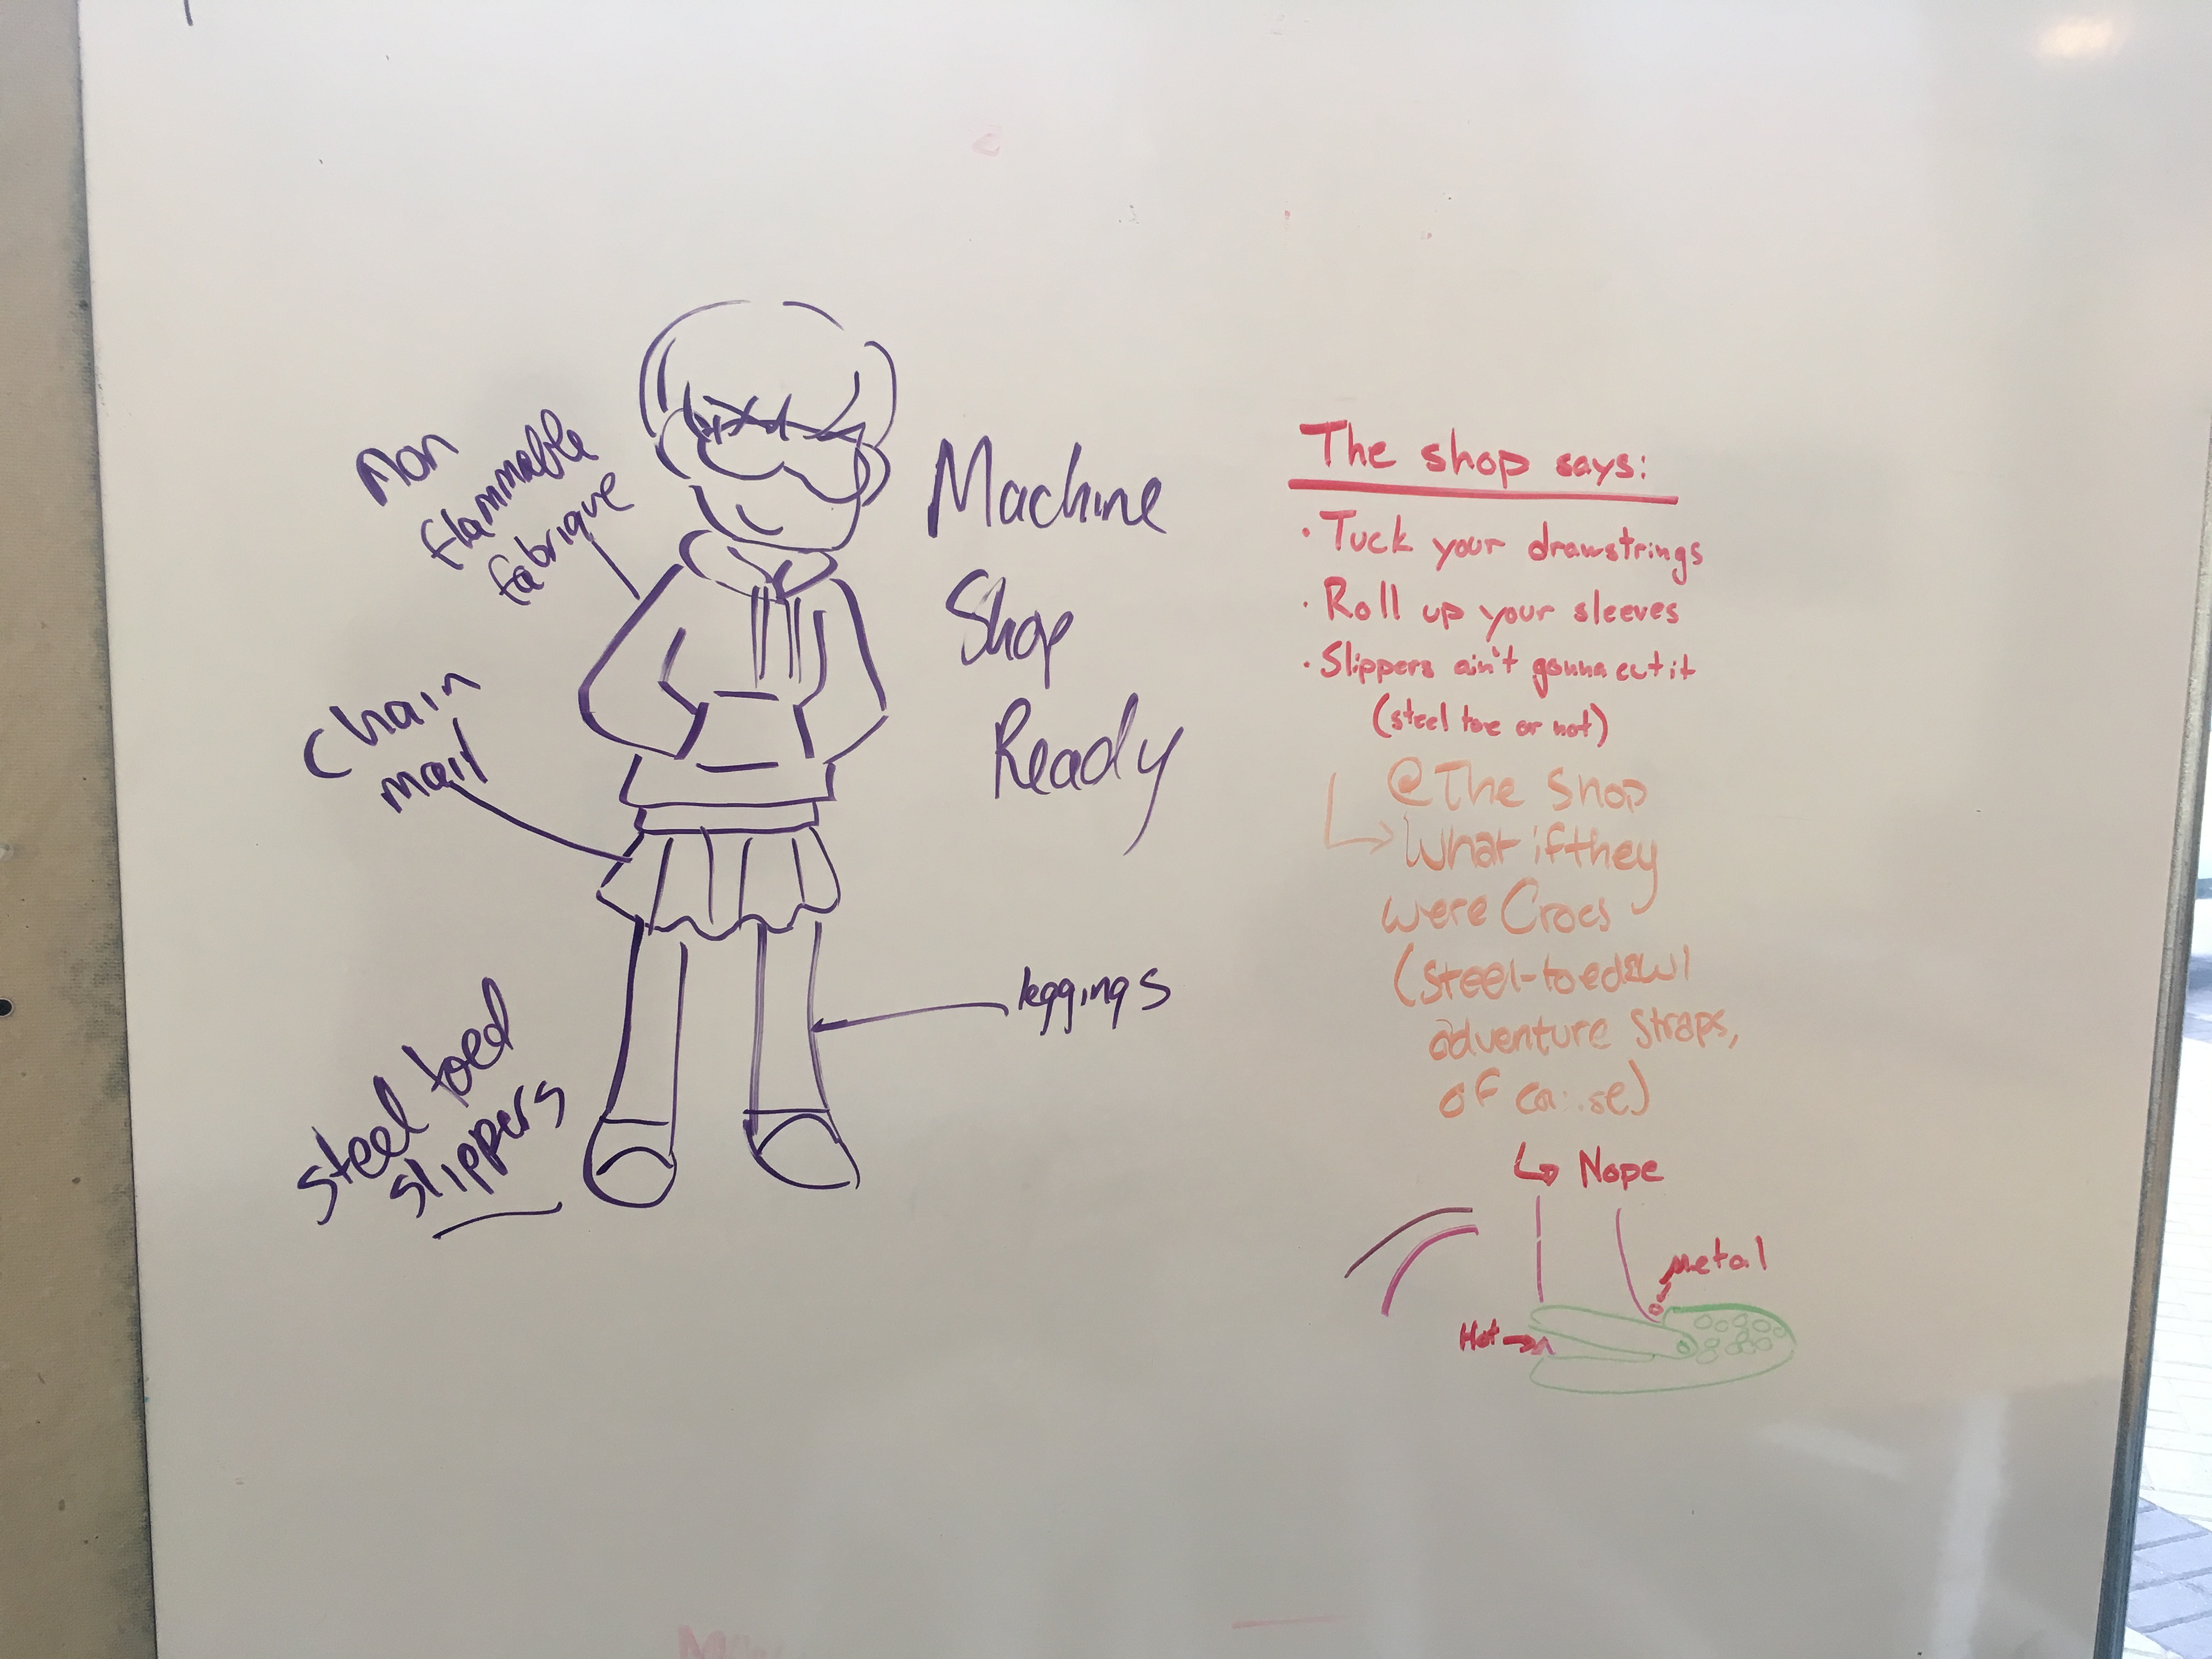 Non
flammable
fabrique
Chain
mail
steel toed
slippers
leggings
Machine
Shop
Ready
The shop says:
· Tuck your drawstrings
· Roll up your sleeves
· Slippers ain't gonna cut it
(steel toe or not)
@The Shop
What if they
were Crocs
(steel-toed w/
adventure straps,
of
Nope
Metal
Hot